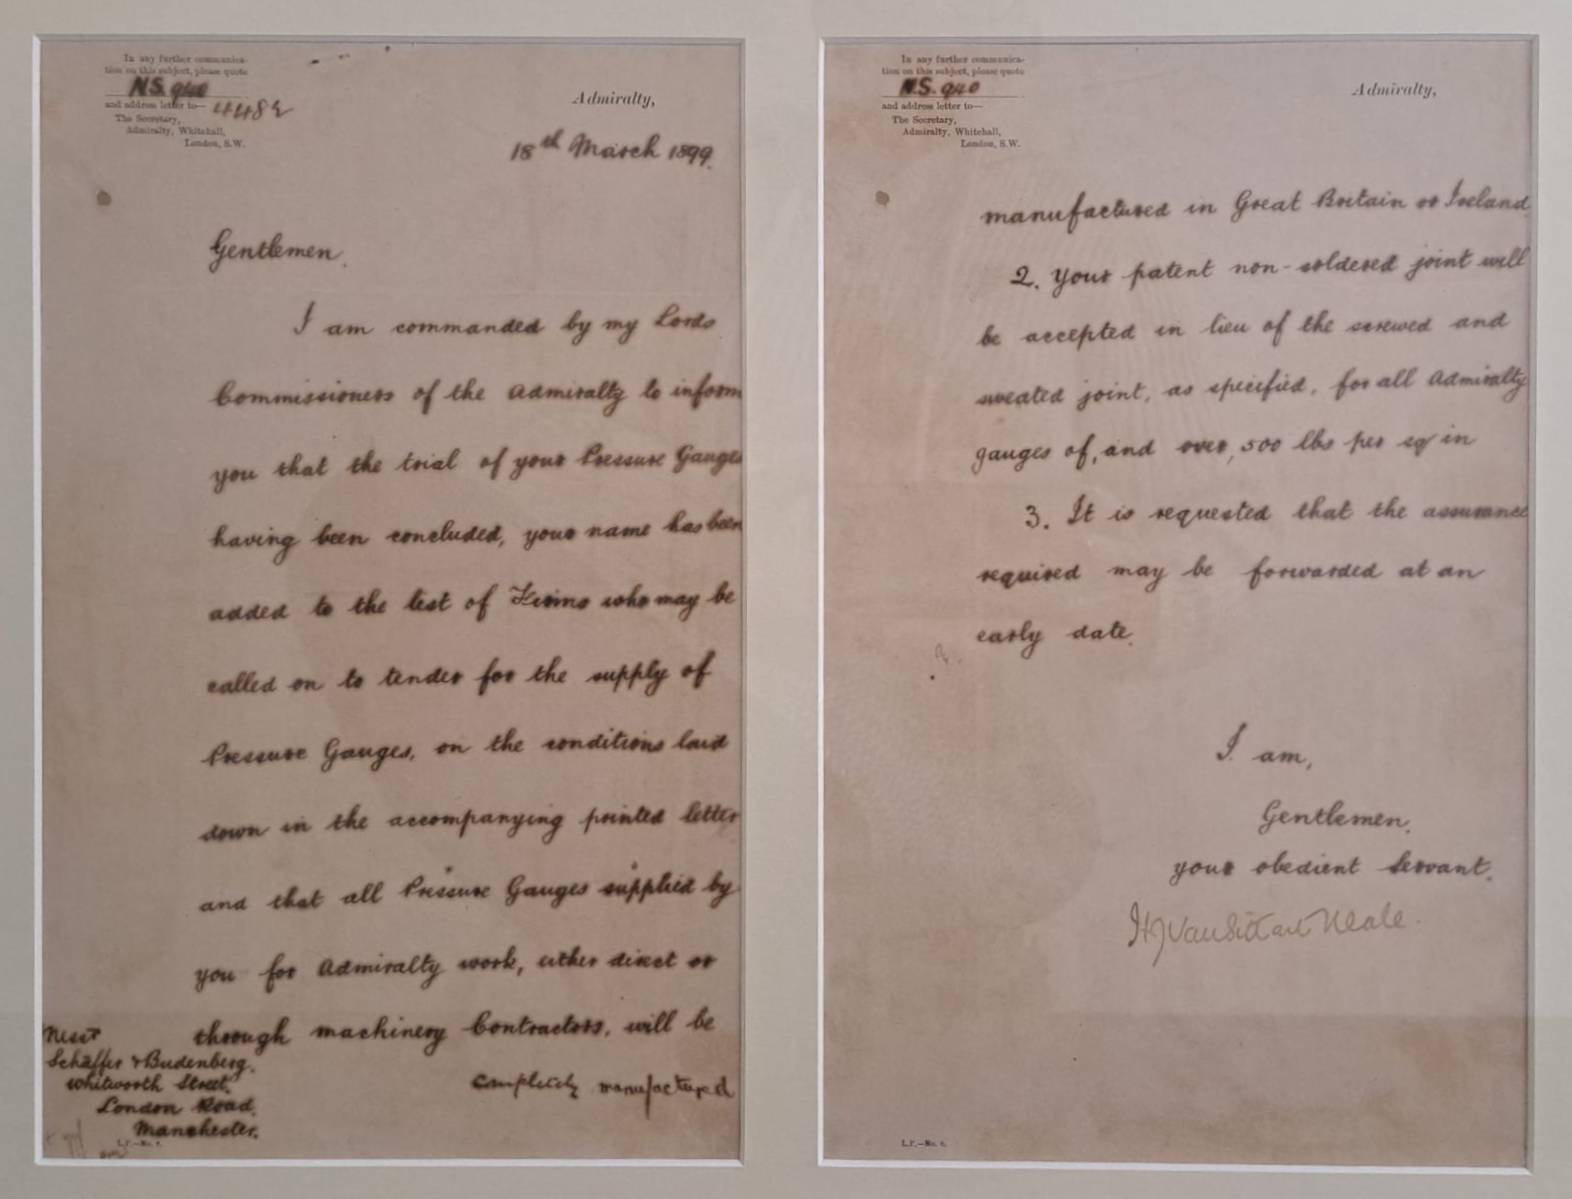 In any further communica-
tion on this subject, please quote
N.S. 940
4482
and address letter to—
The Secretary,
Admiralty, Whitehall,
London, S.W.
Admiralty,
18th March 1899.
Gentlemen.
I am commanded by my Lords
Commissioners of the Admiralty to inform
you that the trial of your Pressure Gauges
having been concluded, your name has been
added to the list of Firms who may be
called on to tender for the supply of
Pressure Gauges, on the conditions laid
down in the accompanying printed letter
and that all Pressure Gauges supplied by
you for Admiralty work, either direct or
through machinery Contractors, will be
completely manufactured
Messrs
Schäffer & Budenberg.
Whitworth Street.
London Road.
Manchester.
In any further communica-
tion on this subject, please quote
N.S. 940
and address letter to—
The Secretary,
Admiralty, Whitehall,
London, S.W.
Admiralty,
manufactured in Great Britain or Ireland.
2. Your patent non-soldered joint will
be accepted in lieu of the screwed and
sweated joint, as specified, for all Admiralty
gauges of, and over, 500 lbs per sq in
3. It is requested that the assurance
required may be forwarded at an
early date.
I am,
Gentlemen.
your obedient Servant.
H J Vansittart Neale.